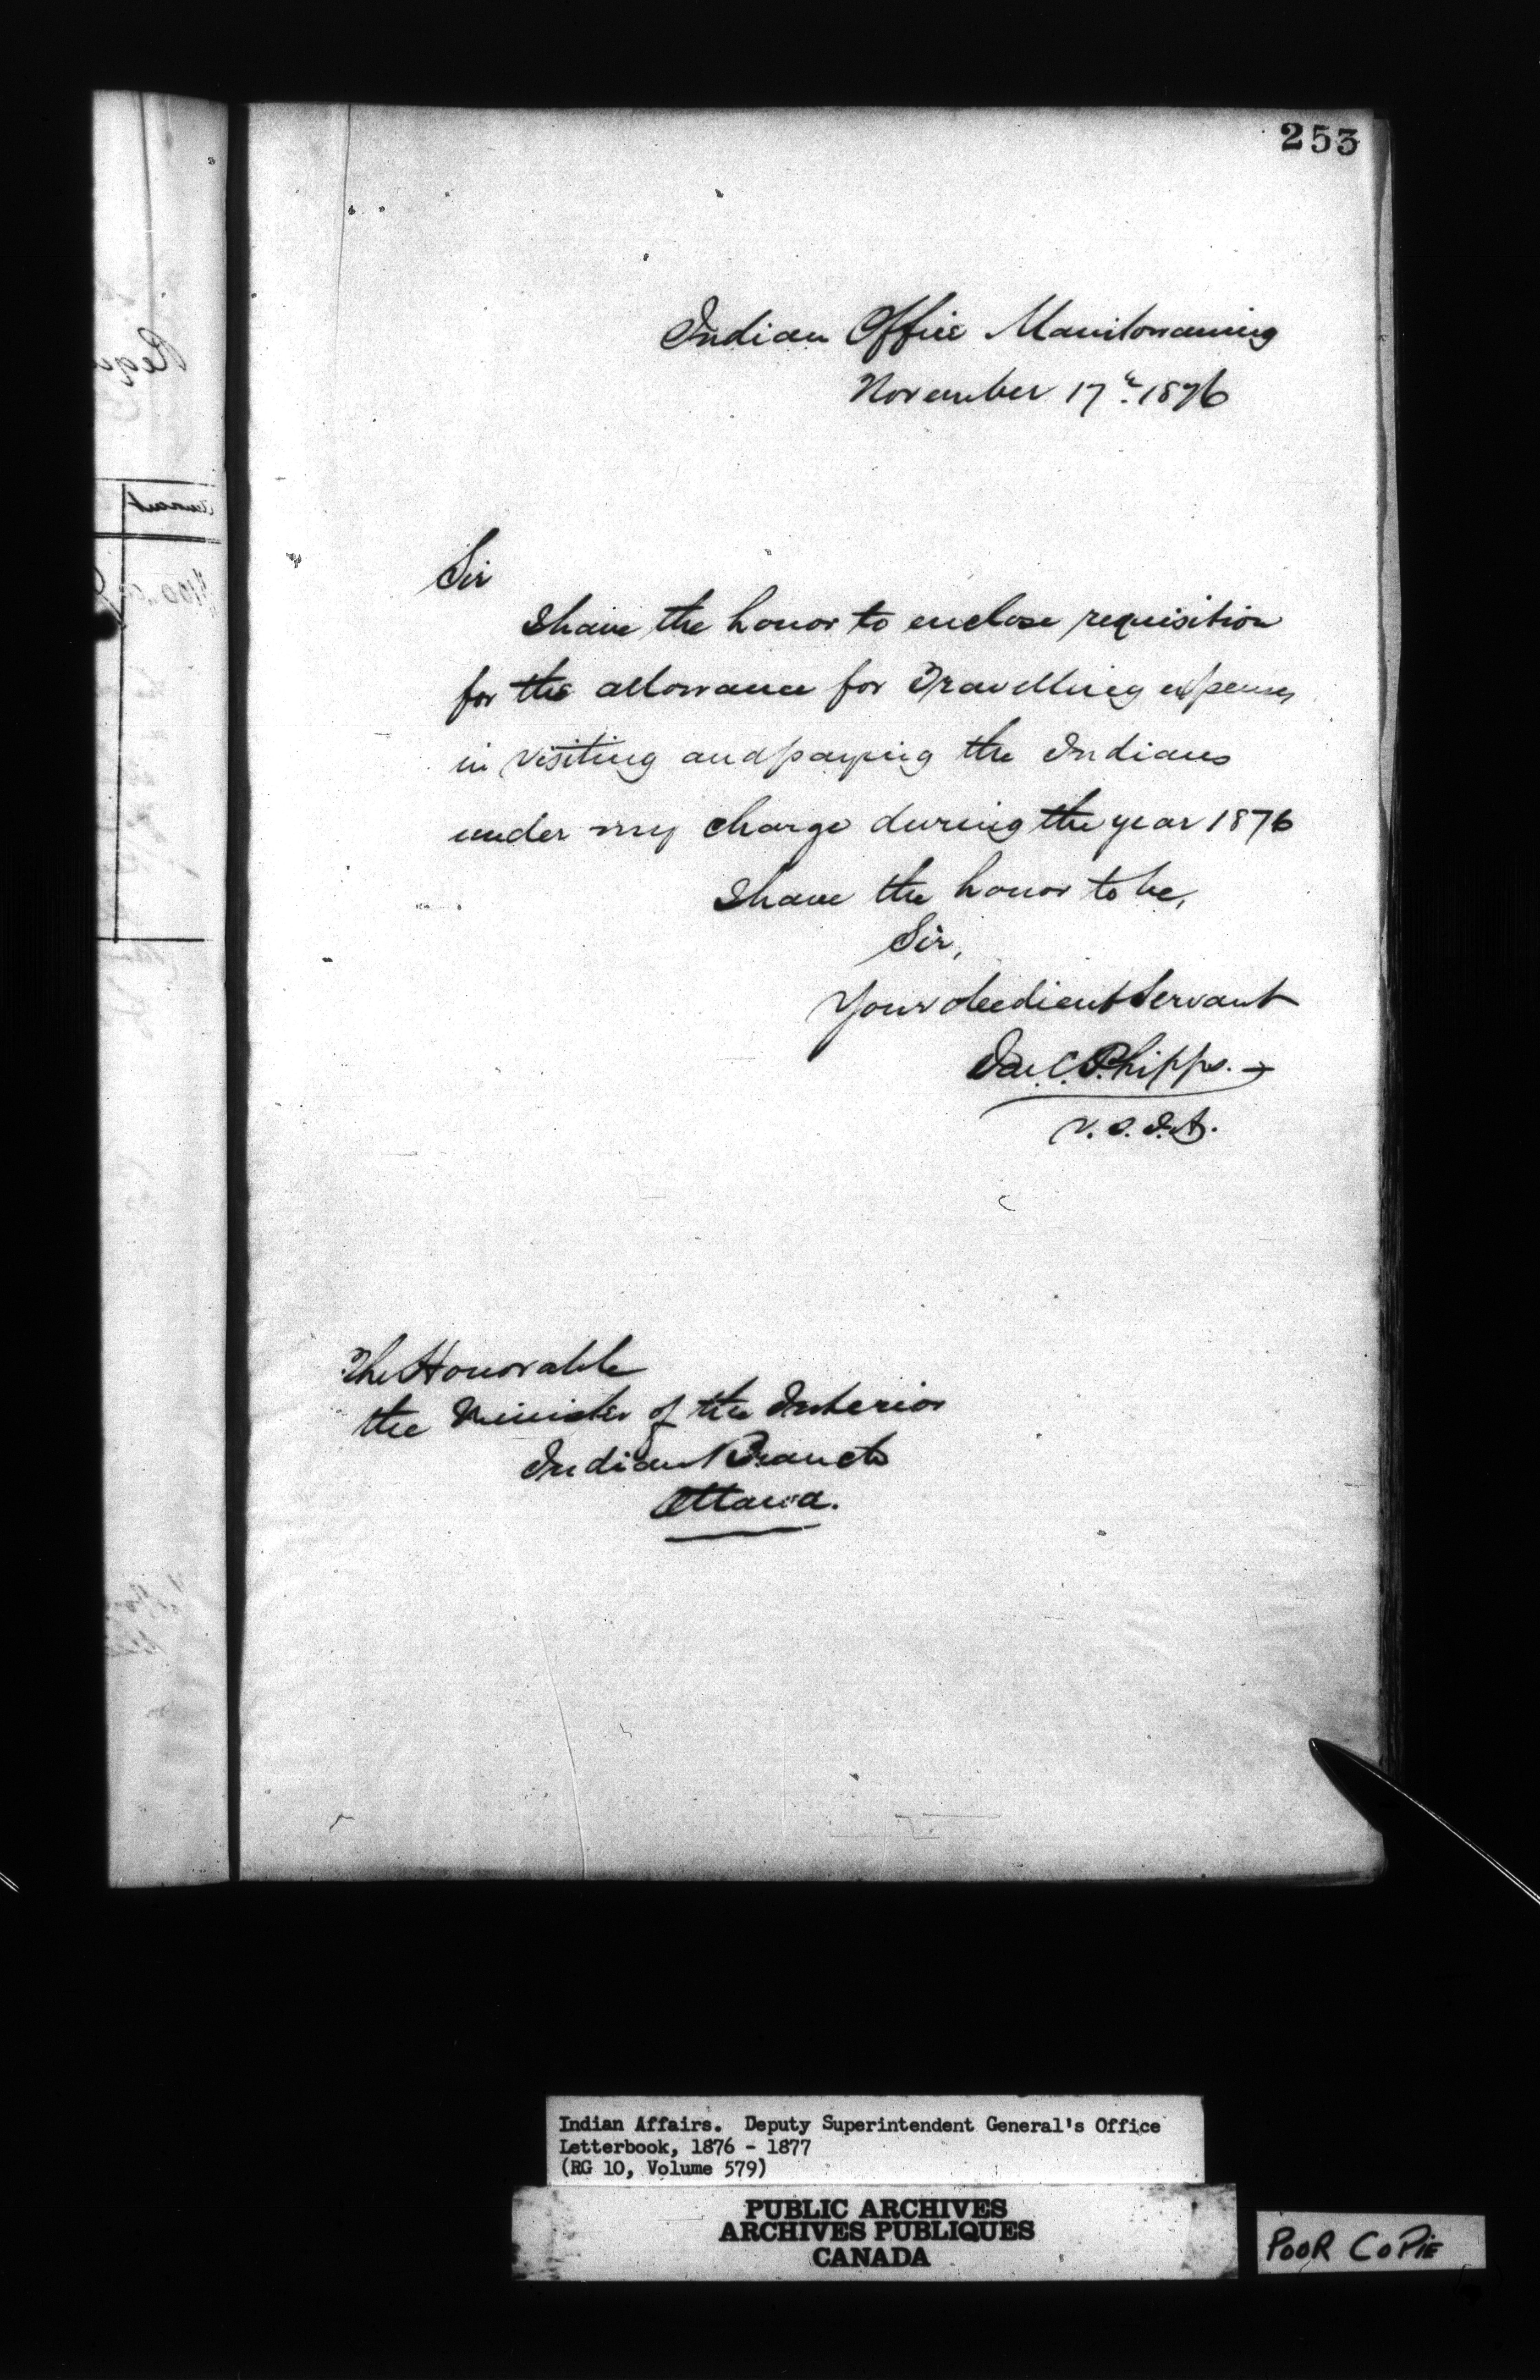 253
Indian Office Manitowaning
November 17th 1876
Sir
I have the honor to enclose requisition
for the allowance for Travelling expenses
in visiting and paying the Indians
under my charge during the year 1876
I have the honor to be,
Sir,
Your obedient Servant
Jas. C. Phipps.
V. S. I. A.
The Honorable
the Minister of the Interior
Indian Branch
Ottawa.
Indian Affairs. Deputy Superintendent General's Office
Letterbook, 1876 - 1877
(RG 10, Volume 579)
PUBLIC ARCHIVES
ARCHIVES PUBLIQUES
CANADA
POOR COPIE